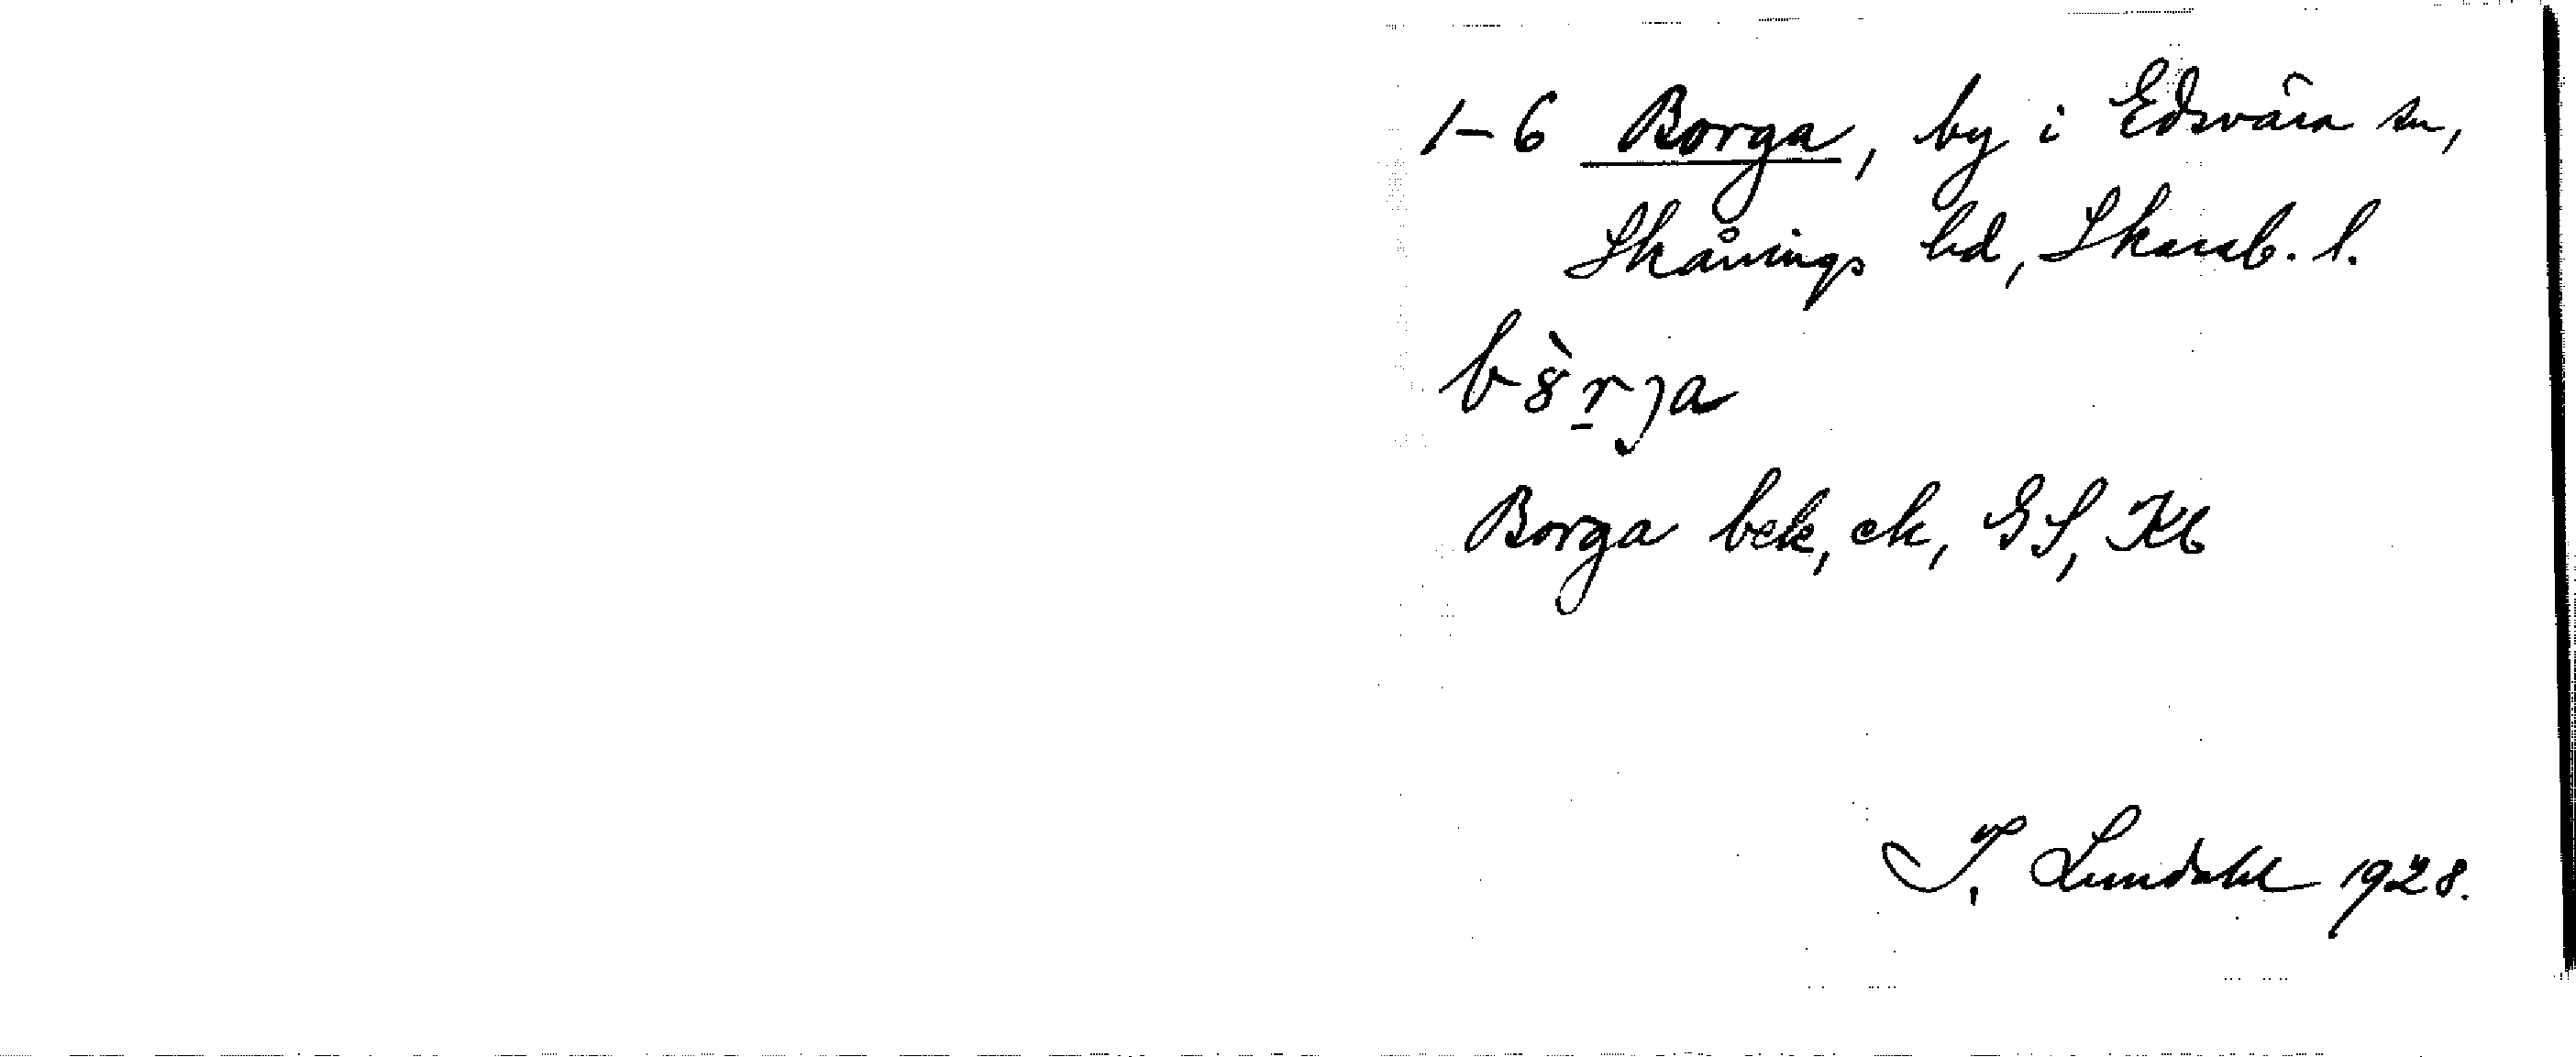 1-6 Borga, by i Edsvära sn,
Skånings hd, Skarab. l.
b8̀r̲ja
Borga bek, ek, GS, Kb
I. Lundahl 1928.